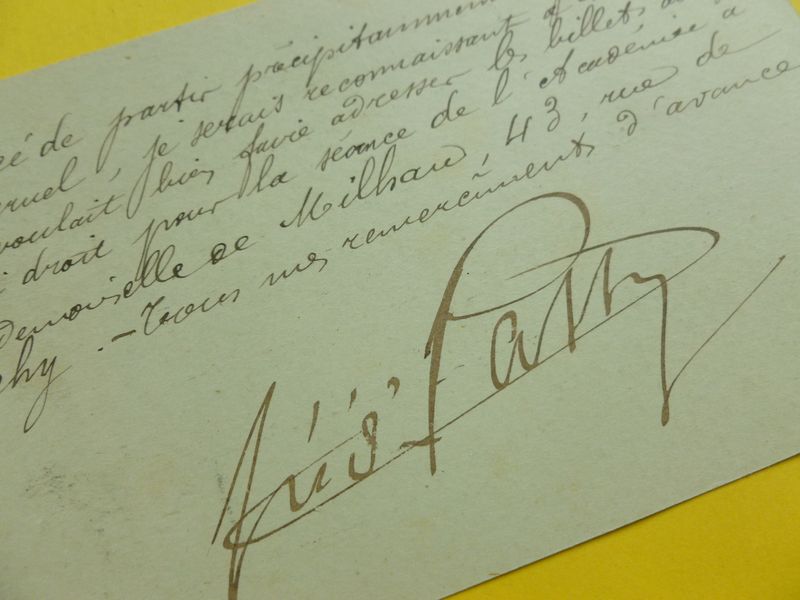 cé de partir précipitamment
ruel, je serais reconnaissant
voulait bien faire adresser les billets
droit pour la séance de l'Académie à
demoiselle de Milhau, 43, rue de
chy. - Tous mes remerciments d'avance